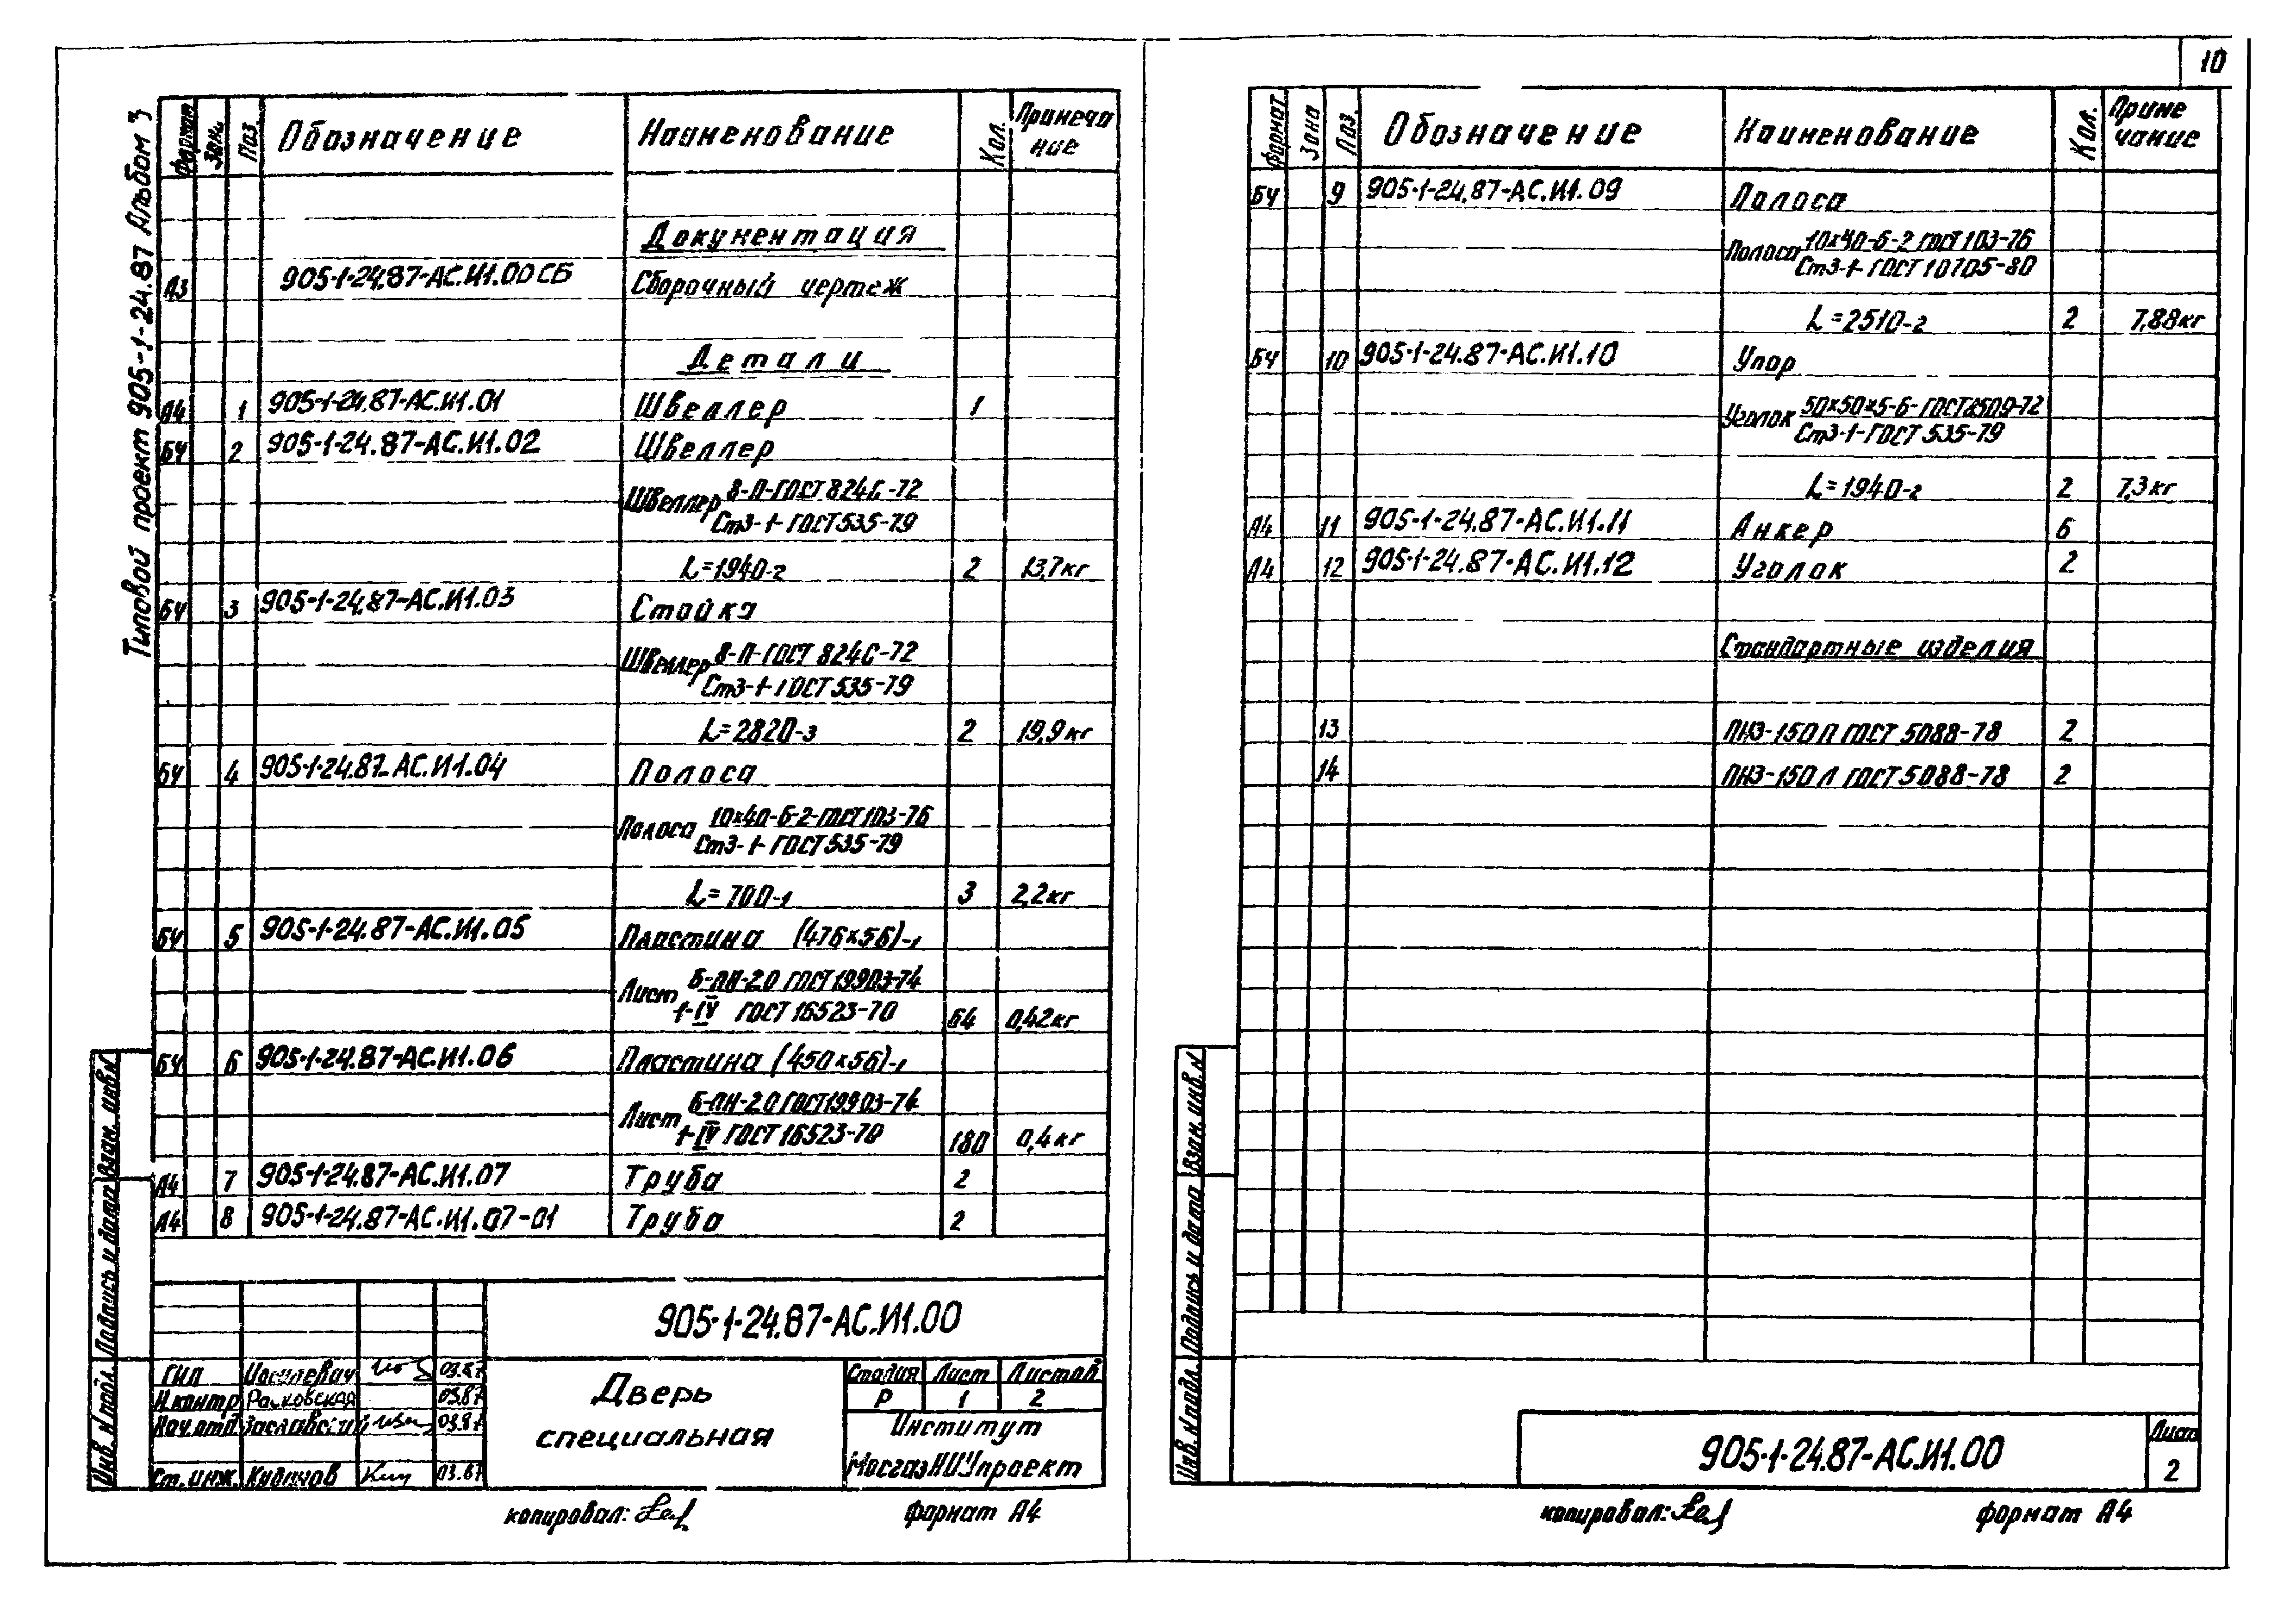 10
Типовой проект 905-1-24.87 Альбом 3
Формат Зона Поз. Обозначение Наименование Кол. Примечание
Документация
А3 905-1-24.87-АС.И1.00 СБ Сборочный чертеж
Детали
А4 1 905-1-24.87-АС.И1.01 Швеллер 1
БЧ 2 905-1-24.87-АС.И1.02 Швеллер
Швеллер 8-П-ГОСТ 8240-72
Ст3-1-ГОСТ 535-79
L=1940-2 2 13,7кг
БЧ 3 905-1-24.87-АС.И1.03 Стойка
Швеллер 8-П-ГОСТ 8240-72
Ст3-1-ГОСТ 535-79
L=2820-3 2 19,9кг
БЧ 4 905-1-24.87-АС.И1.04 Полоса
Полоса 10×40-Б-2-ГОСТ 103-76
Ст3-1-ГОСТ 535-79
L=700-1 3 2,2кг
БЧ 5 905-1-24.87-АС.И1.05 Пластина (476×56)-1
Лист Б-ПН-2.0 ГОСТ 19903-74
1-IV ГОСТ 16523-70 64 0,42кг
БЧ 6 905-1-24.87-АС.И1.06 Пластина (450×56)-1
Лист Б-ПН-2.0 ГОСТ 19903-74
1-IV ГОСТ 16523-70 180 0,4кг
А4 7 905-1-24.87-АС.И1.07 Труба 2
А4 8 905-1-24.87-АС.И1.07-01 Труба 2
905-1-24.87-АС.И1.00
ГИП 03.87
Н.контр Расковская 03.87
Нач.отд. Заславский 03.87
Ст.инж. Кудинов 03.87
Дверь
специальная
Стадия Лист Листов
Р 1 2
Институт
МосгазНИИпроект
копировал: формат А4
Взам. инв.N
Подпись и дата
Инв.N подл.
Формат Зона Поз. Обозначение Наименование Кол. Примечание
БЧ 9 905-1-24.87-АС.И1.09 Полоса
Полоса 10×40-Б-2 ГОСТ 103-76
Ст3-1-ГОСТ 10705-80
L=2510-2 2 7,88кг
БЧ 10 905-1-24.87-АС.И1.10 Упор
Уголок 50×50×5-Б-ГОСТ 8509-72
Ст3-1-ГОСТ 535-79
L=1940-2 2 7,3кг
А4 11 905-1-24.87-АС.И1.11 Анкер 6
А4 12 905-1-24.87-АС.И1.12 Уголок 2
Стандартные изделия
13 ПН3-150 П ГОСТ 5088-78 2
14 ПН3-150 Л ГОСТ 5088-78 2
Взам. инв.N
Подпись и дата
Инв.N подл.
905-1-24.87-АС.И1.00
Лист
2
копировал: формат А4